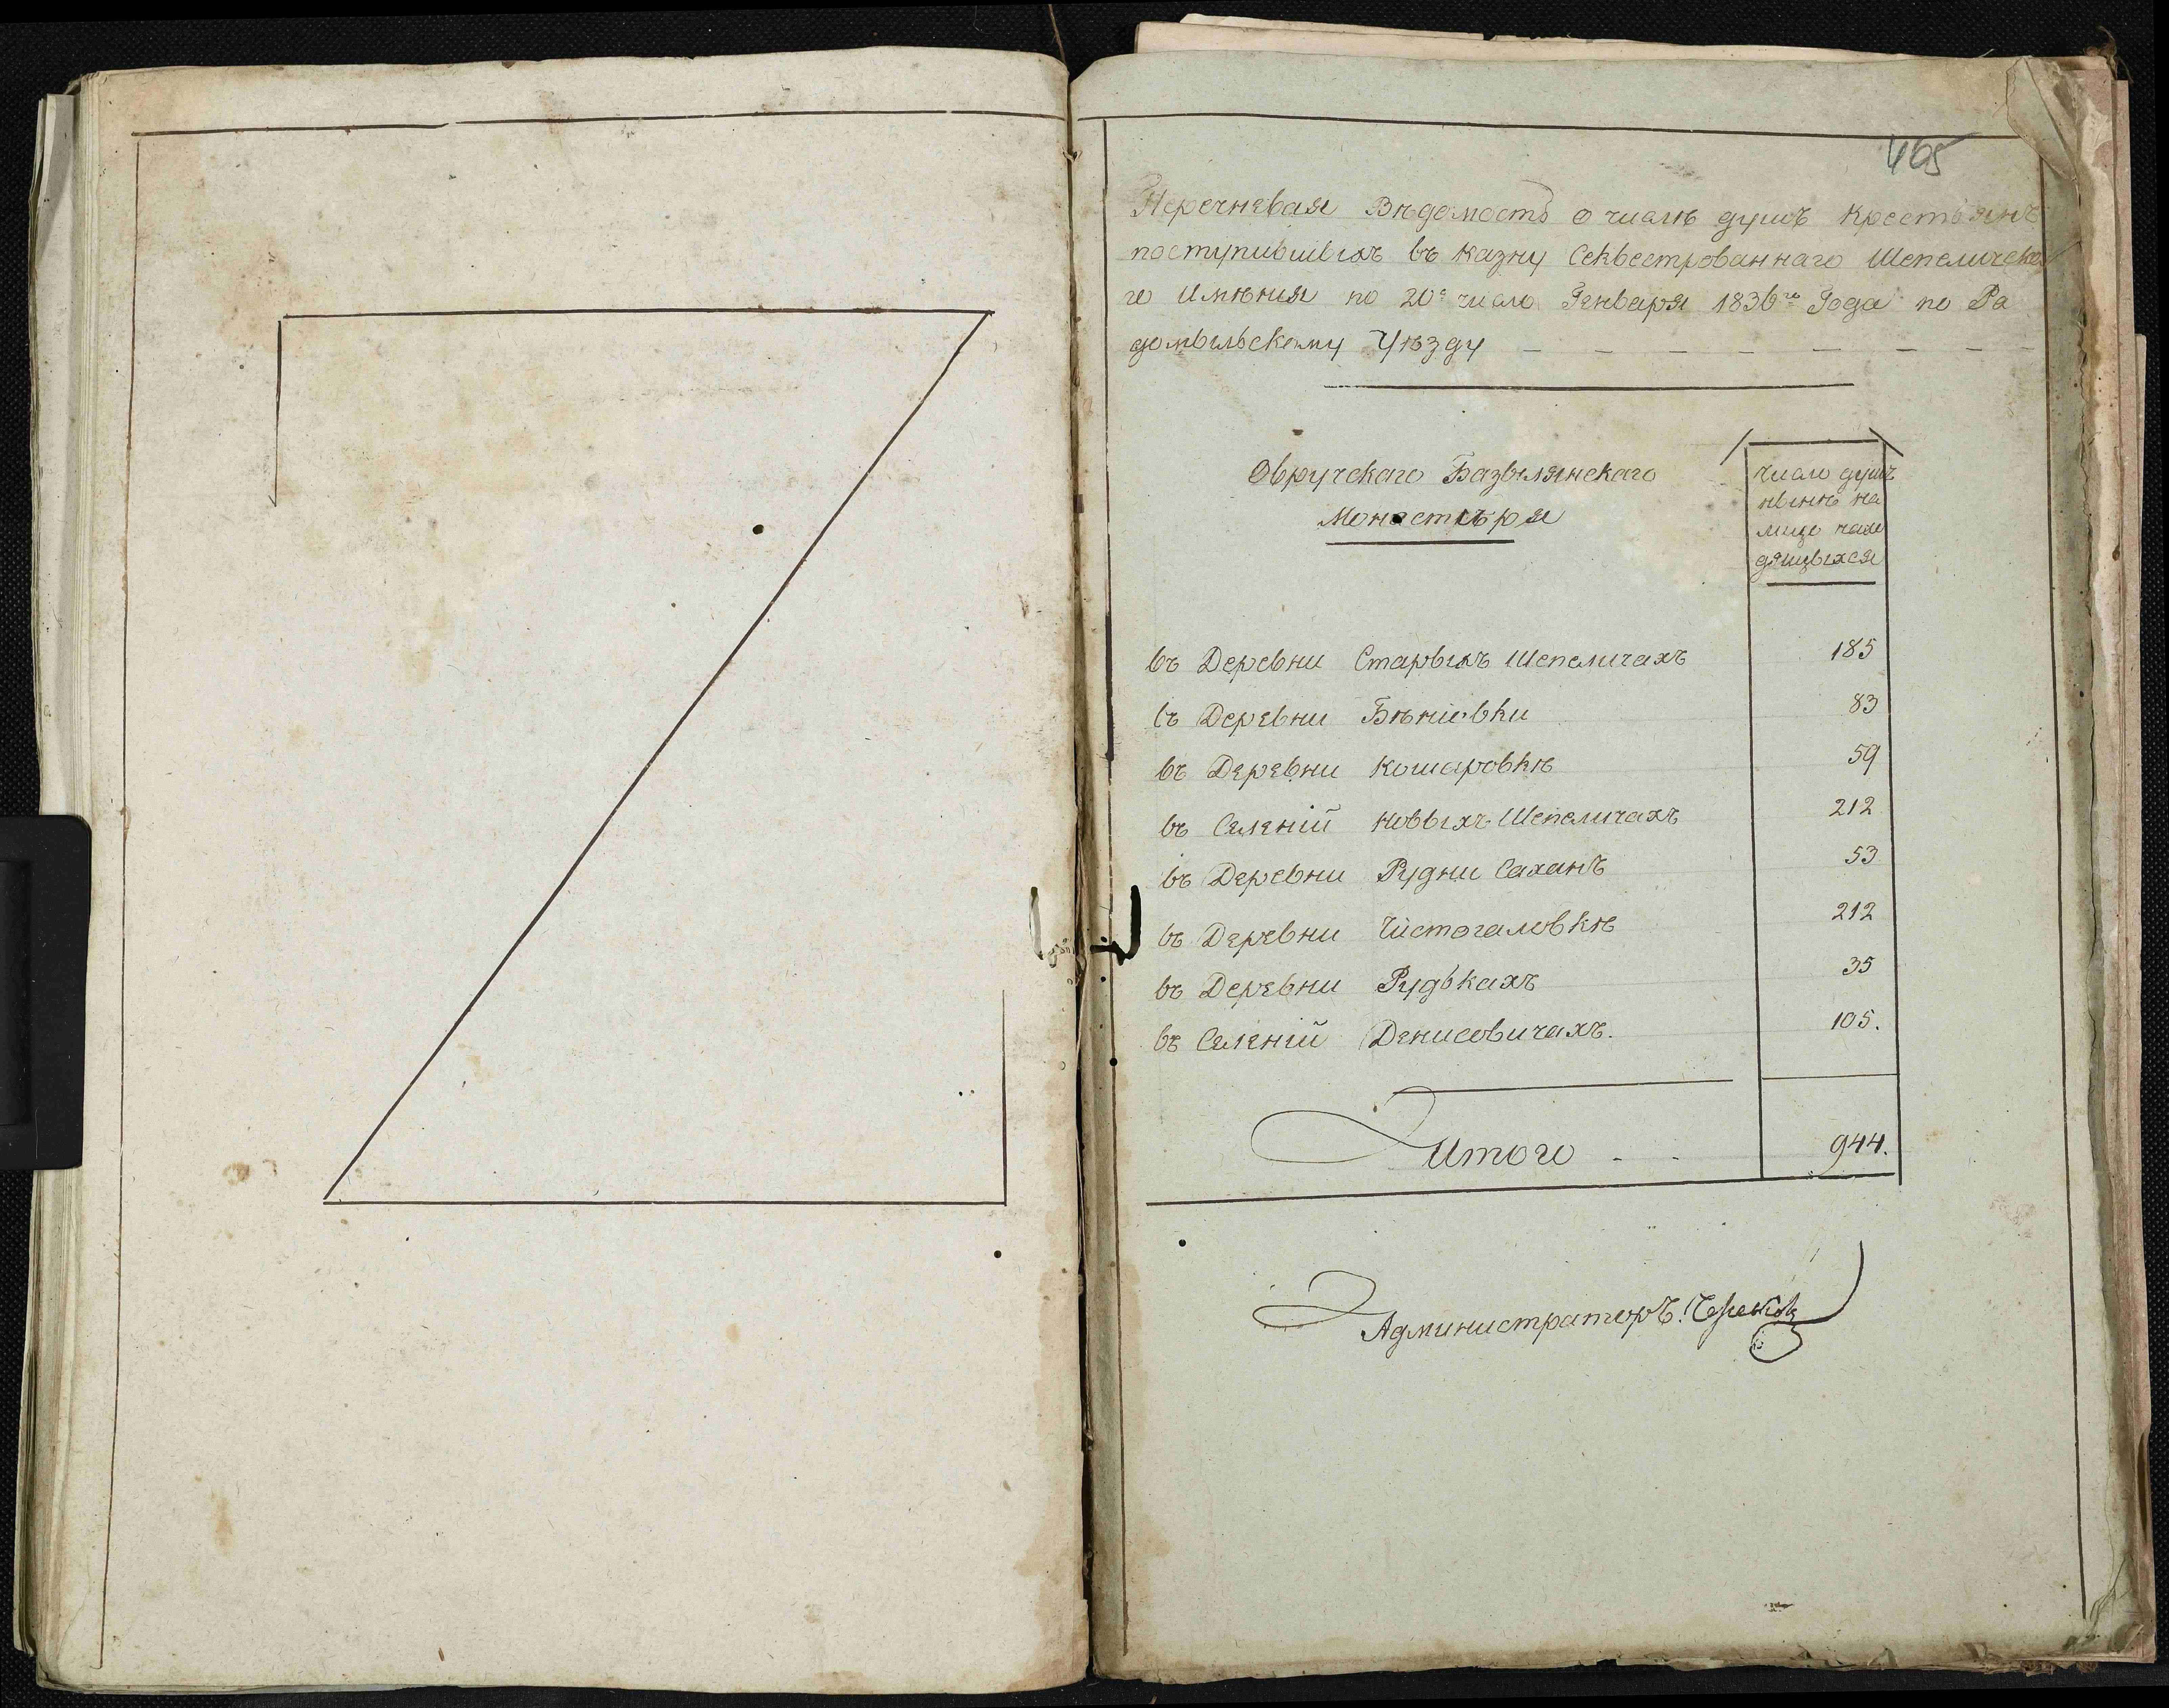 465
Перечневая Вѣдомость о числѣ душъ крестьянъ
поступившихъ въ казну Секвестрованнаго Шепеличска
го Имѣния по 20е число Генваря 1836го Года по Ра
домысльскому Уѣзду
Овручскаго Базылянскаго
Монастыря
число душъ
нынѣ на
лице нахо
дящыхся
въ Деревни Старыхъ Шепеличахъ 185
въ Деревни Бѣніовки 83
въ Деревни Кошаровкѣ 59
въ Селеніи Новыхъ Шепеличахъ 212
въ Деревни Рудни Саханъ 53
въ Деревни Чистогаловкѣ 212
въ Деревни Рудькахъ 35
въ Селеніи Денисовичахъ. 105.
Итого - - 944.
Администраторъ